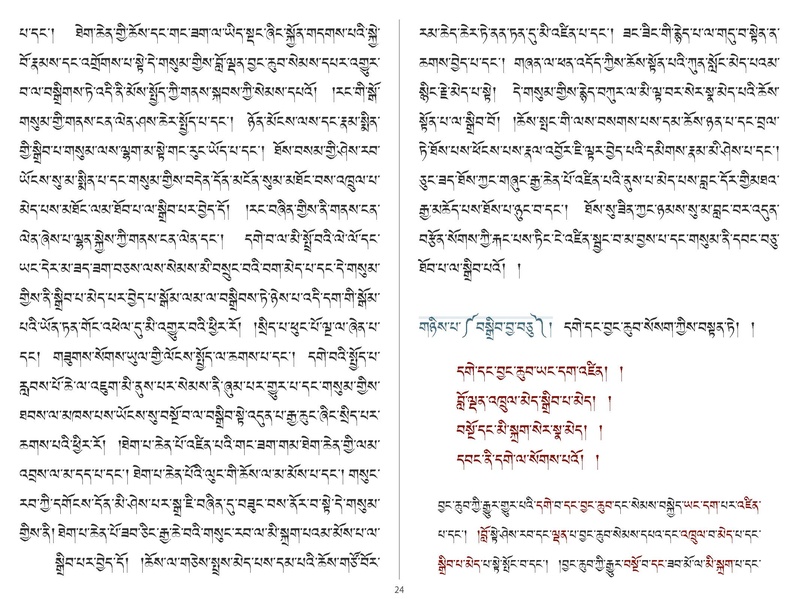 པ་དང་།    ཐེག་ཆེན་གྱི་ཆོས་དང་གང་ཟག་ལ་ཡིད་སྡང་ཞིང་སྐྱོན་གདགས་པའི་སྐྱེ་
བོ་རྣམས་དང་འགྲོགས་པ་སྟེ་དེ་གསུམ་གྱིས་བློ་ལྡན་བྱང་ཆུབ་སེམས་དཔར་འགྱུར་
བ་ལ་བསྒྲིགས་ཏེ་འདི་ནི་མོས་སྤྱོད་ཀྱི་གནས་སྐབས་ཀྱི་སེམས་དཔའོ།    །རང་གི་སྒོ་
གསུམ་གྱི་གནས་ངན་ལེན་ཤས་ཆེར་སྤྱོད་པ་དང་།    ཉོན་མོངས་ལས་དང་རྣམ་སྨིན་
གྱི་སྒྲིབ་པ་གསུམ་ལས་ལྷག་མ་སྟེ་གང་རུང་ཡོད་པ་དང་།    ཐོས་བསམ་གྱི་ཤེས་རབ་
ཡོངས་སུ་མ་སྨིན་པ་དང་གསུམ་གྱིས་བདེན་དོན་མངོན་སུམ་མཐོང་བས་འཁྲུལ་པ་
མེད་པས་མཐོང་ལམ་ཐོབ་པ་ལ་སྒྲིབ་པར་བྱེད་དོ།    །རང་བཞིན་གྱིས་ནི་གནས་ངན་
ལེན་ཞེས་པ་ལྷན་སྐྱེས་ཀྱི་གནས་ངན་ལེན་དང་།    དགེ་བ་ལ་མི་སྤྲོ་བའི་ལེ་ལོ་དང་
ཡང་དེར་མ་ཟད་ཟག་བཅས་ལས་སེམས་མི་བསྲུང་བའི་བག་མེད་པ་དང་དེ་གསུམ་
གྱིས་ནི་སྒྲིབ་པ་མེད་པར་བྱེད་པ་སྒོམ་ལམ་ལ་བསྒྲིབས་ཏེ་ཉེས་པ་འདི་དག་གི་སྒོམ་
པའི་ཡོན་ཏན་གོང་འཕེལ་དུ་མི་འགྱུར་བའི་ཕྱིར་རོ།    །སྲིད་པ་ཕུང་པོ་ལྔ་ལ་ཞེན་པ་
དང།    གཟུགས་སོགས་ཡུལ་གྱི་ལོངས་སྤྱོད་ལ་ཆགས་པ་དང་།    དགེ་བའི་སྤྱོད་པ་
རླབས་པོ་ཆེ་ལ་འཇུག་མི་ནུས་པར་སེམས་ནི་ཞུམ་པར་གྱུར་པ་དང་གསུམ་གྱིས་
ཐབས་ལ་མཁས་པས་ཡོངས་སུ་བསྔོ་བ་ལ་བསྒྲིབ་སྟེ་འདུན་པ་རྒྱ་ཆུང་ཞིང་སྲིད་པར་
ཆགས་པའི་ཕྱིར་རོ།    །ཐེག་པ་ཆེན་པོ་འཛིན་པའི་གང་ཟག་གམ་ཐེག་ཆེན་གྱི་ལམ་
འབྲས་ལ་མ་དད་པ་དང་། ཐེག་པ་ཆེན་པོའི་ལུང་གི་ཆོས་ལ་མ་མོས་པ་དང་། གསུང་
རབ་ཀྱི་དགོངས་དོན་མི་ཤེས་པར་སྒྲ་ཇི་བཞིན་དུ་བཟུང་བས་ནོར་བ་སྟེ་དེ་གསུམ་
གྱིས་ནི། ཐེག་པ་ཆེན་པོ་ཟབ་ཅིང་རྒྱ་ཆེ་བའི་གསུང་རབ་ལ་མི་སྐྲག་པའམ་མོས་པ་ལ་
སྒྲིབ་པར་བྱེད་དོ།    །ཆོས་ལ་གཅེས་སྤྲས་མེད་པས་དམ་པའི་ཆོས་གཙོ་བོར་
རམ་ཆེད་ཆེར་ཏེ་ནན་ཏན་དུ་མི་འཛིན་པ་དང་།   ཟང་ཟིང་གི་རྙེད་པ་ལ་གདུ་བ་སྟེན་ན་
ཆགས་བྱེད་པ་དང་།   གཞན་ལ་ཕན་འདོད་ཀྱིས་ཆོས་སྟོན་པའི་ཀུན་སློང་མེད་པའམ་
སྙིང་རྗེ་མེད་པ་སྟེ།    དེ་གསུམ་གྱིས་རྙེད་བཀུར་ལ་མི་ལྟ་བར་སེར་སྣ་མེད་པའི་ཆོས་
སྟོན་པ་ལ་སྒྲིབ་བོ།    །ཆོས་སྤང་གི་ལས་བསགས་པས་དམ་ཆོས་ཉན་པ་དང་བྲལ་
ཏེ་ཐོས་པས་ཕོངས་པས་རྣལ་འབྱོར་ཇི་ལྟར་བྱེད་པའི་དམིགས་རྣམ་མི་ཤེས་པ་དང་།
ཅུང་ཟད་ཐོས་ཀྱང་གཞུང་རྒྱ་ཆེན་པོ་འཛིན་པའི་ནུས་པ་མེད་པས་བླང་དོར་གྱི་མཐའ་
རྒྱ་མཆོད་པས་ཐོས་པ་ཉུང་བ་དང་།    ཐོས་སུ་ཟིན་ཀྱང་ཉམས་སུ་མ་བླང་བར་འདུན་
བརྩོན་སོགས་ཀྱི་རྐང་པས་ཏིང་ངེ་འཛིན་སྦྱང་བ་མ་བྱས་པ་དང་གསུམ་ནི་དབང་བཅུ་
ཐོབ་པ་ལ་སྒྲིབ་པའོ།   །
གཉིས་པ་༼བསྒྲིབ་བྱ་བཅུ་༽།   དགེ་དང་བྱང་ཆུབ་སོསག་ཀྱིས་བསྟན་ཏེ།   །
དགེ་དང་བྱང་ཆུབ་ཡང་དག་འཛིན།   །
བློ་ལྡན་འཁྲུལ་མེད་སྒྲིབ་པ་མེད།   །
བསྔོ་དང་མི་སྐྲག་སེར་སྣ་མེད།   །
དབང་ནི་དགེ་ལ་སོགས་པའོ།   །
བྱང་ཆུབ་ཀྱི་རྒྱུར་གྱུར་པའི་དགེ་བ་དང་བྱང་ཆུབ་དང་སེམས་བསྐྱེད་ཡང་དག་པར་འཛིན་
པ་དང་།   །བློ་སྟེ་ཤེས་རབ་དང་ལྡན་པ་བྱང་ཆུབ་སེམས་དཔའ་དང་འཁྲུལ་བ་མེད་པ་དང་
སྒྲིབ་པ་མེད་པ་སྟེ་སྤོང་བ་དང་།   །བྱང་ཆུབ་ཀྱི་རྒྱུར་བསྔོ་བ་དང་ཟབ་མོ་ལ་མི་སྐྲག་པ་དང་
24